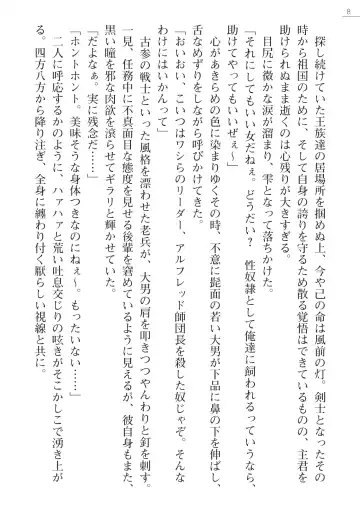 8
探し続けていた王族達の居場所を掴めぬ上、今や己の命は風前の灯。剣士となったその
時から祖国のために、そして自身の誇りを守るため散る覚悟はできているものの、主君を
助けられぬまま逝くのは心残りが大きすぎる。
目尻に微かな涙が溜まり、雫となって落ちかけた。
「それにしてもいい女だねぇ。どうだい? 性奴隷として俺達に飼われるっていうなら、
助けてやってもいいぜぇ〜」
心があきらめの色に染まりゆくその時、不意に髭面の若い大男が下品に鼻の下を伸ばし、
舌なめずりをしながら呼びかけてきた。
「おいおい、こいつはワシらのリーダー、アルフレッド師団長を殺した奴じゃぞ。そんな
わけにはいかんって」
古参の戦士といった風格を漂わせた老兵が、大男の肩を叩きつつやんわりと釘を刺す。
一見、任務に不真面目な態度を見せる後輩を窘めているように見えるが、彼自身もまた、
黒い瞳を邪な肉欲を滾らせてギラリと輝かせていた。
「だよなぁ。実に残念だ……」
「ホントホント。美味そうな身体つきなのにねぇ〜。もったいない……」
二人に呼応するかのように、ハァハァと荒い吐息交じりの呟きがそこかしこで湧き上が
る。四方八方から降り注ぎ、全身に纏わり付く厭らしい視線と共に。